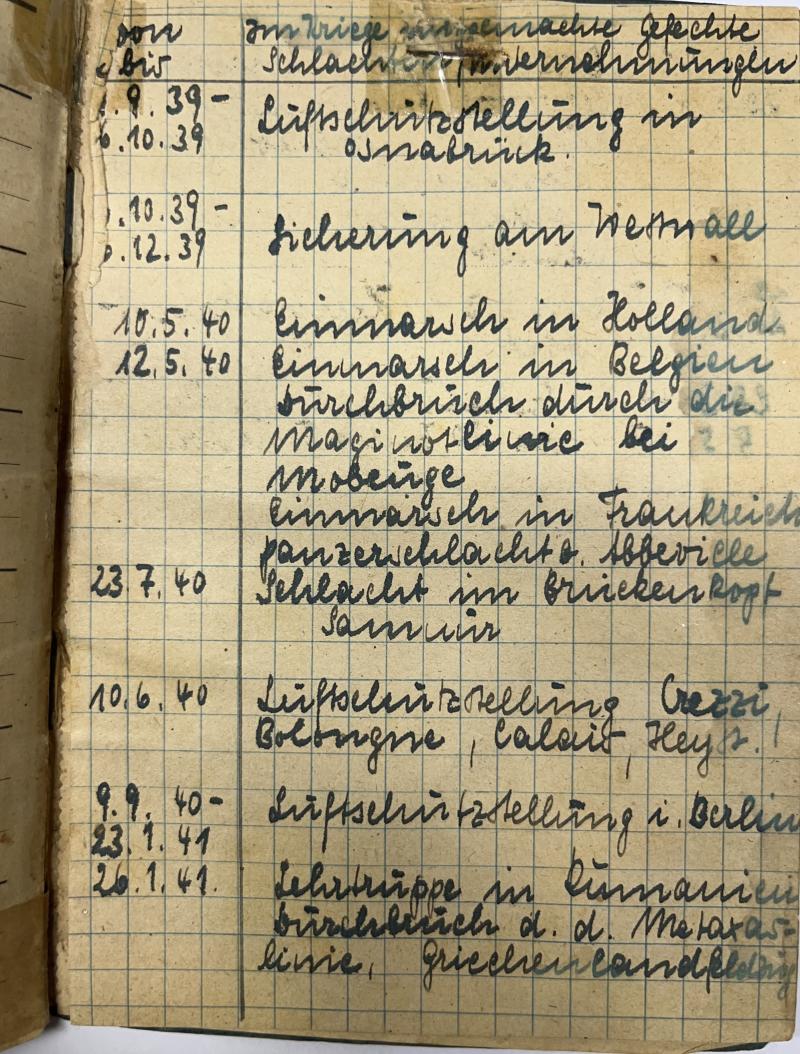 von Im Kriege mitgemachte Gefechte
bis Schlachten, Unternehmungen
.9.39- Luftschutzstellung in
.10.39 Osnabrück.
.10.39-
.12.39 Sicherung am Westwall
10.5.40 Einmarsch in Holland
12.5.40 Einmarsch in Belgien
Durchbruch durch die
Maginotlinie bei
Mobeuge
Einmarsch in Frankreich
Panzerschlacht b. Abbeville
23.7.40 Schlacht im Brückenkopf
Samur
10.6.40 Luftschutzstellung Crezzi,
Bolongne, Calais, Heyst.
9.9.40- Luftschutzstellung i. Berlin
23.1.41
26.1.41. Lehrtruppe in Rumänien
Durchbruch d. d. Metaxas-
linie, Griechenlandfeldzug